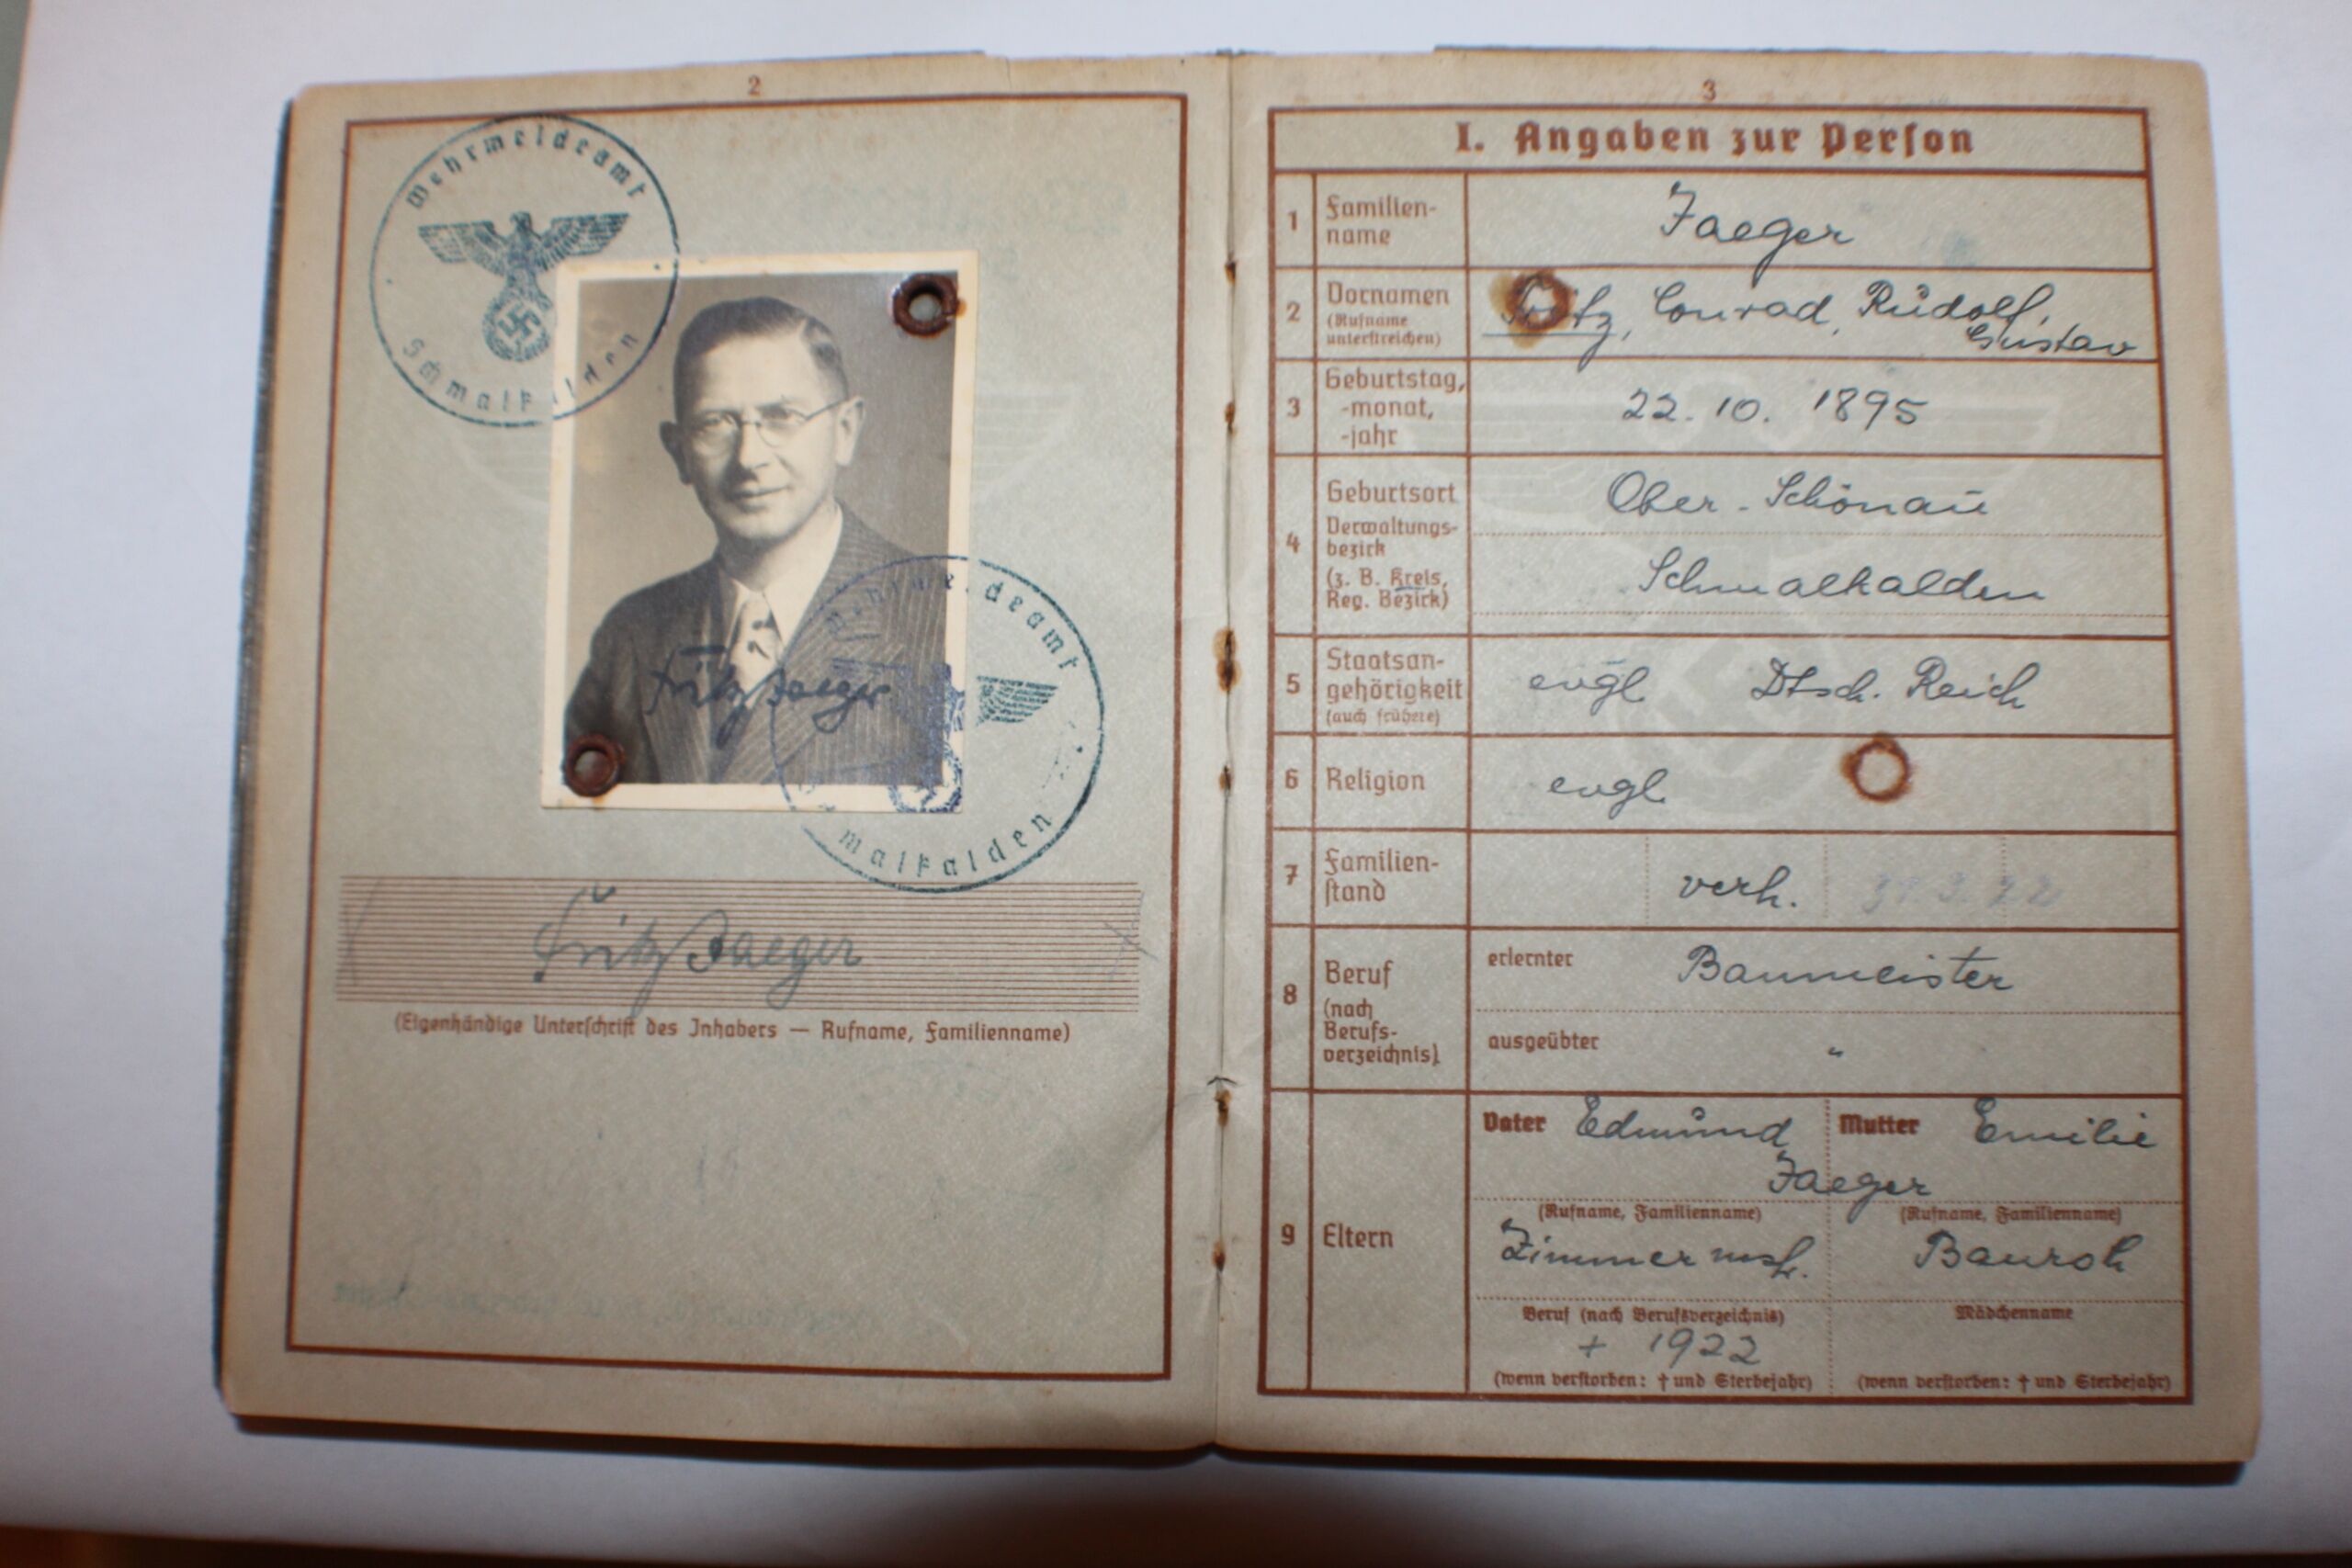 2
Wehrmeldeamt
Schmalkalden
Fritz Jaeger
deamt
malkalden
Fritz Jaeger
(Eigenhändige Unterschrift des Inhabers — Rufname, Familienname)
3
I. Angaben zur Person
1 Familien-
name
Jaeger
2 Vornamen
(Rufname
unterstreichen)
Fritz, Conrad, Rudolf,
Gustav
3 Geburtstag,
-monat,
-jahr
22. 10. 1895
4 Geburtsort
Verwaltungs-
bezirk
(z. B. Kreis,
Reg. Bezirk)
Ober-Schönau
Schmalkalden
5 Staatsan-
gehörigkeit
(auch frühere)
evgl Dtsch. Reich
6 Religion
evgl.
7 Familien-
stand
verh.
8 Beruf
(nach
Berufs-
verzeichnis)
erlernter Baumeister
ausgeübter "
9 Eltern
Vater Edmund Mutter Emilie
Jaeger
(Rufname, Familienname) (Rufname, Familienname)
Zimmermstr. Bauroth
Beruf (nach Berufsverzeichnis) Mädchenname
+ 1922
(wenn verstorben: † und Sterbejahr) (wenn verstorben: † und Sterbejahr)